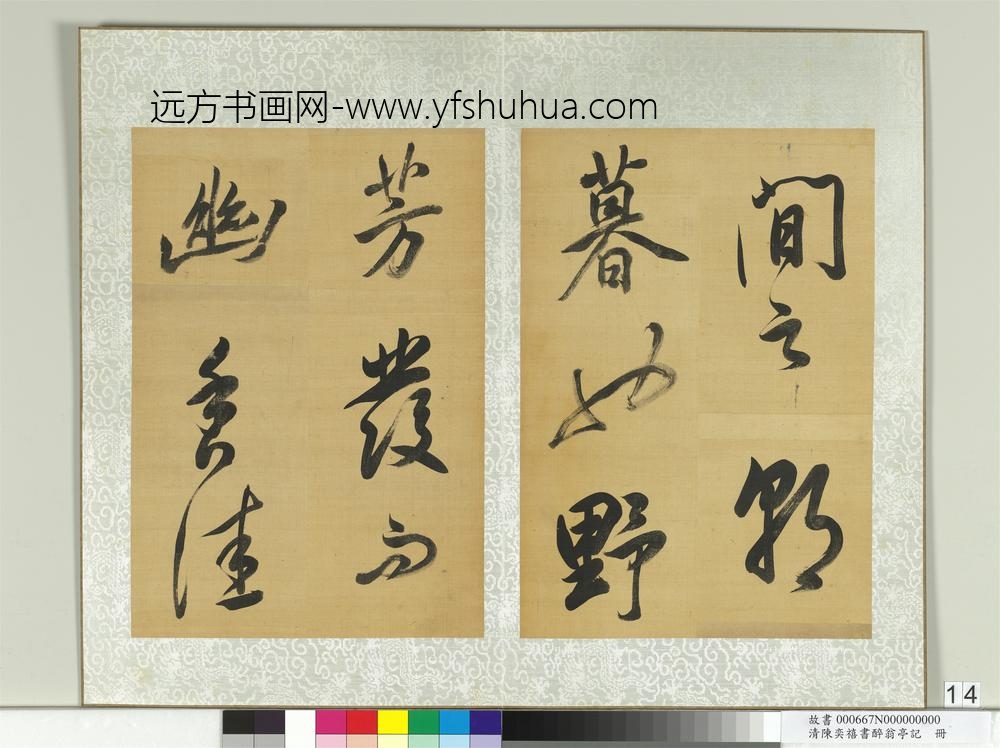 远方书画网-www.yfshuhua.com
間之朝
暮也野
芳發而
幽香佳
14
故書 000667N000000000
清陳奕禧書醉翁亭記 冊